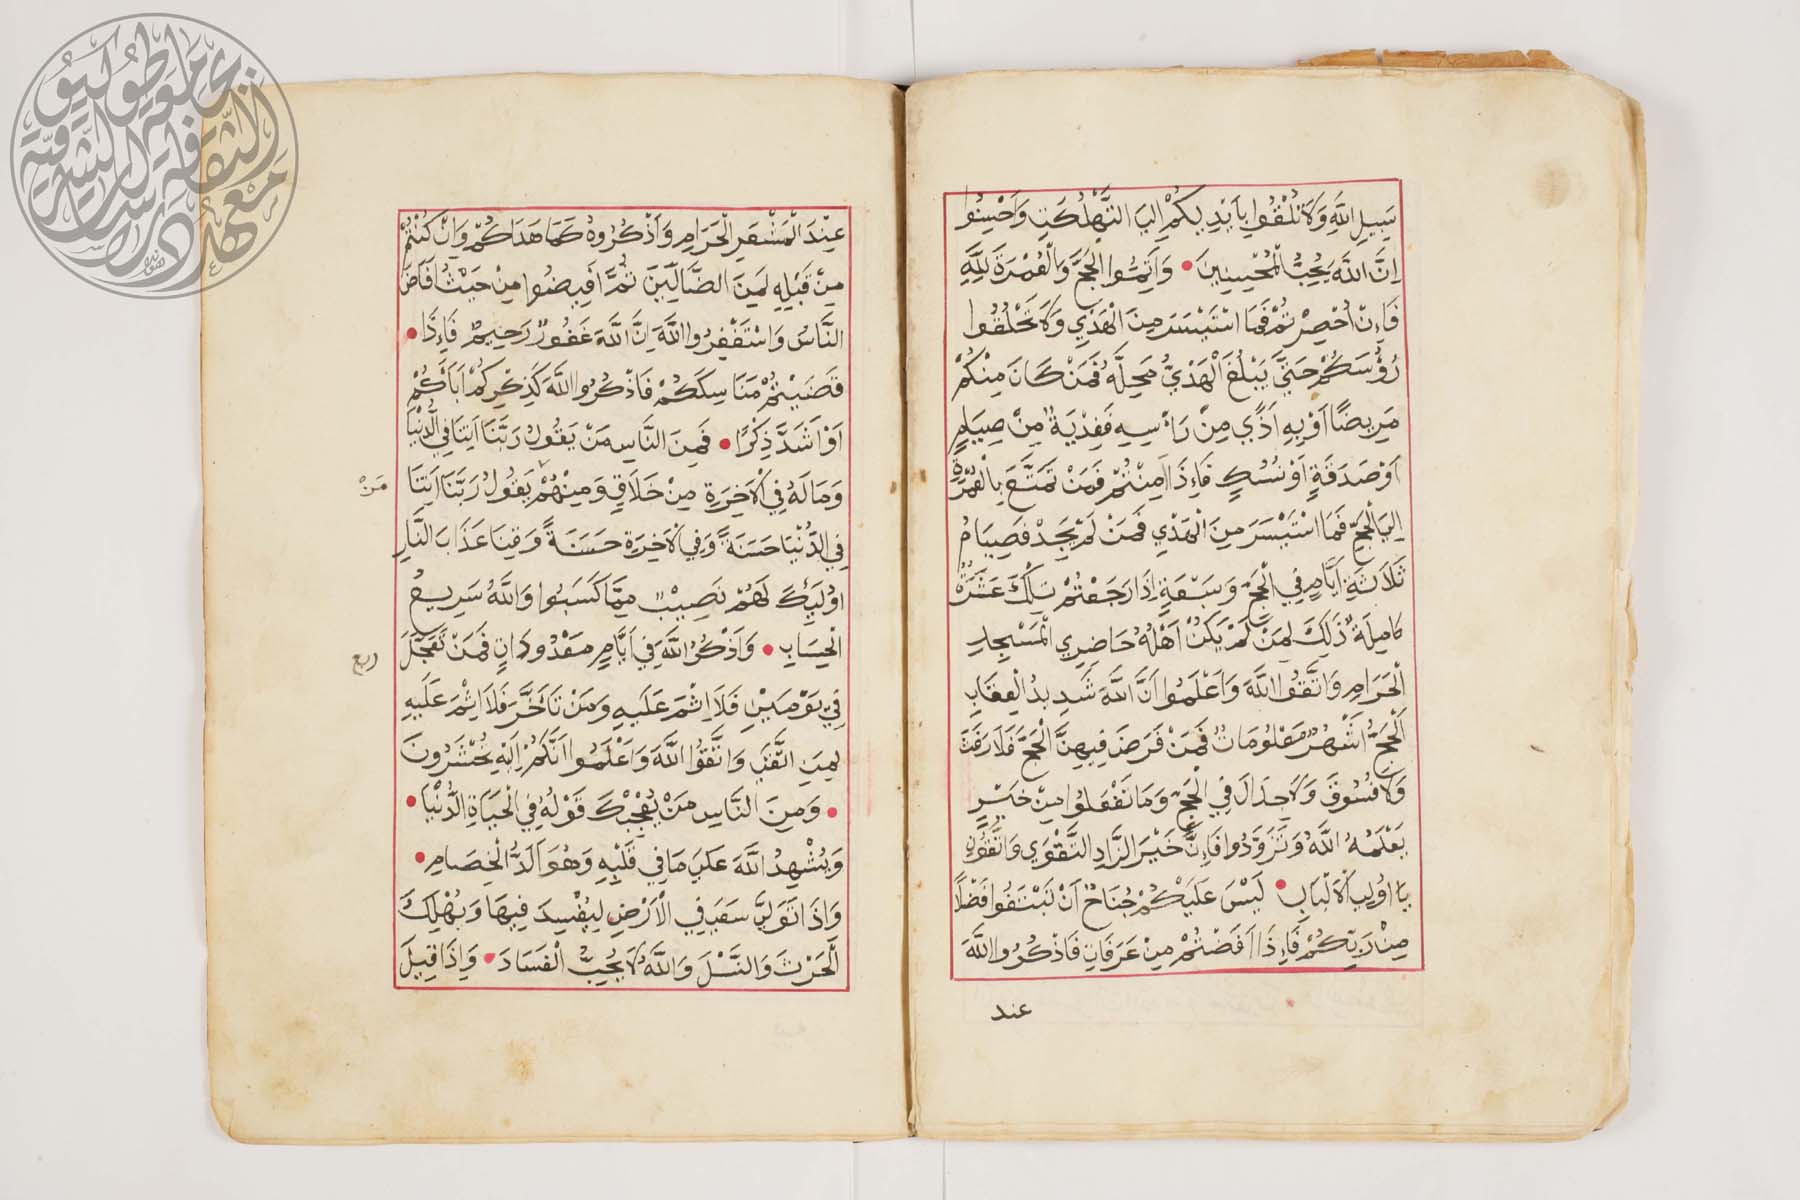 سَبِيلِ اللَّهِ وَلَا تُلْقُوا بِاَيْدِيكُمْ اِلَي التَّهْلُكَةِ وَاَحْسِنُوا
اِنَّ اللَّهَ يُحِبُّ الْمُحْسِنِينَ وَاَتِمُّوا الْحَجَّ وَالْعُمْرَةَ لِلَّهِ
فَاِنْ اُحْصِرْتُمْ فَمَا اسْتَيْسَرَ مِنَ الْهَدْيِ وَلَا تَحْلُقُوا
رُؤُسَكُمْ حَتَّي يَبْلُغَ الْهَدْيُ مَحِلَّهُ فَمَنْ كَانَ مِنْكُمْ
مَرِيضًا اَوْ بِهِ اَذًي مِنْ رَأْسِهِ فَفِدْيَةٌ مِنْ صِيَامٍ
اَوْ صَدَقَةٍ اَوْ نُسُكٍ فَاِذَا اَمِنْتُمْ فَمَنْ تَمَتَّعَ بِالْعُمْرَةِ
اِلَي الْحَجِّ فَمَا اسْتَيْسَرَ مِنَ الْهَدْيِ فَمَنْ لَمْ يَجِدْ فَصِيَامُ
ثَلَاثَةِ اَيَّامٍ فِي الْحَجِّ وَسَبْعَةٍ اِذَا رَجَعْتُمْ تِلْكَ عَشَرَةٌ
كَامِلَةٌ ذَلِكَ لِمَنْ لَمْ يَكُنْ اَهْلُهُ حَاضِرِي الْمَسْجِدِ
الْحَرَامِ وَاتَّقُوا اللَّهَ وَاعْلَمُوا اَنَّ اللَّهَ شَدِيدُ الْعِقَابِ
اَلْحَجُّ اَشْهُرٌ مَعْلُومَاتٌ فَمَنْ فَرَضَ فِيهِنَّ الْحَجَّ فَلَا رَفَثَ
وَلَا فُسُوقَ وَلَا جِدَالَ فِي الْحَجِّ وَمَا تَفْعَلُوا مِنْ خَيْرٍ
يَعْلَمْهُ اللَّهُ وَتَزَوَّدُوا فَاِنَّ خَيْرَ الزَّادِ التَّقْوَي وَاتَّقُونِ
يَا اُولِي الْاَلْبَابِ لَيْسَ عَلَيْكُمْ جُنَاحٌ اَنْ تَبْتَغُوا فَضْلًا
مِنْ رَبِّكُمْ فَاِذَا اَفَضْتُمْ مِنْ عَرَفَاتٍ فَاذْكُرُوا اللَّهَ
عند
عِنْدَ الْمَشْعَرِ الْحَرَامِ وَاذْكُرُوهُ كَمَا هَدَاكُمْ وَاِنْ كُنْتُمْ
مِنْ قَبْلِهِ لَمِنَ الضَّالِّينَ ثُمَّ اَفِيضُوا مِنْ حَيْثُ اَفَاضَ
النَّاسُ وَاسْتَغْفِرُوا اللَّهَ اِنَّ اللَّهَ غَفُورٌ رَحِيمٌ فَاِذَا
قَضَيْتُمْ مَنَاسِكَكُمْ فَاذْكُرُوا اللَّهَ كَذِكْرِكُمْ اَبَاءَكُمْ
اَوْ اَشَدَّ ذِكْرًا فَمِنَ النَّاسِ مَنْ يَقُولُ رَبَّنَا اَتِنَا فِي الدُّنْيَا
وَمَا لَهُ فِي الْاَخِرَةِ مِنْ خَلَاقٍ وَمِنْهُمْ يَقُولُ رَبَّنَا اَتِنَا
مَنْ
فِي الدُّنْيَا حَسَنَةً وَفِي الْاَخِرَةِ حَسَنَةً وَقِنَا عَذَابَ النَّارِ
اُولَئِكَ لَهُمْ نَصِيبٌ مِمَّا كَسَبُوا وَاللَّهُ سَرِيعُ
الْحِسَابِ وَاذْكُرُ اللَّهَ فِي اَيَّامٍ مَعْدُودَاتٍ فَمَنْ تَعَجَّلَ
ربع
فِي يَوْمَيْنِ فَلَا اِثْمَ عَلَيْهِ وَمَنْ تَاَخَّرَ فَلَا اِثْمَ عَلَيْهِ
لِمَنِ اتَّقَي وَاتَّقُوا اللَّهَ وَاعْلَمُوا اَنَّكُمْ اِلَيْهِ تُحْشَرُونَ
وَمِنَ النَّاسِ مَنْ يُعْجِبُكَ قَوْلُهُ فِي الْحَيَاةِ الدُّنْيَا
وَيُشْهِدُ اللَّهَ عَلَي مَا فِي قَلْبِهِ وَهُوَ اَلَدُّ الْخِصَامِ
وَاِذَا تَوَلَّي سَعَي فِي الْاَرْضِ لِيُفْسِدَ فِيهَا وَيُهْلِكَ
الْحَرْثَ وَالنَّسْلَ وَاللَّهُ لَا يُحِبُّ الْفَسَادَ وَاِذَا قِيلَ